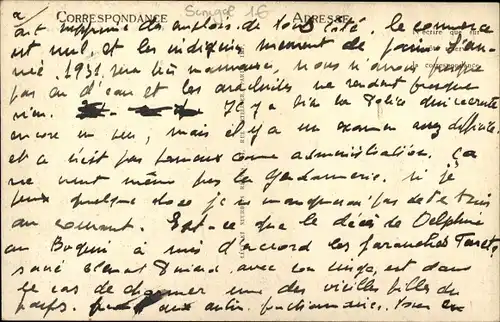 CORRESPONDANCE Senegal 16 ADRESSE
fait supprimé des emplois de tous côtés. le commerce
est nul, et les indigènes meurent de faim. L'an-
née 1931 sera très mauvaise, nous n'avons presque
pas eu d'eau et les arachides ne rendent presque
rien. Il y a bien la Police qui recrute
encore un peu, mais il y a un examen assez difficile
et ce n'est pas fameux comme administration. Ça
ne vaut même pas la Gendarmerie. Si je
peux quelque chose je ne manquerai pas de te tenir
au courant. Est-ce que le décès de Delphine
au a mis d'accord les
avec son linge, est dans
le cas de charmer une des vieilles filles du
pays. aux autres fonctionnaires. bien